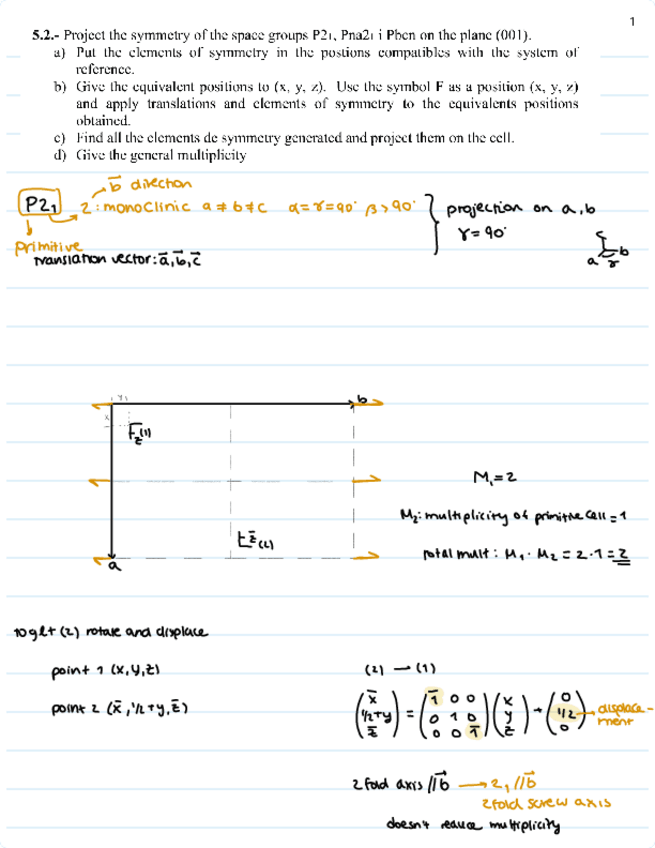 1
5.2.- Project the symmetry of the space groups P2₁, Pna2₁ i Pbcn on the plane (001).
a) Put the elements of symmetry in the postions compatibles with the system of
reference.
b) Give the equivalent positions to (x, y, z). Use the symbol F as a position (x, y, z)
and apply translations and elements of symmetry to the equivalents positions
obtained.
c) Find all the elements de symmetry generated and project them on the cell.
d) Give the general multiplicity
b⃗ direction
P2₁ 2: monoclinic a ≠ b ≠ c α = γ = 90° β > 90°
projection on a, b
γ = 90°
Primitive
translation vector: a⃗, b⃗, c⃗
a b γ
b
F z (1)
M₁ = 2
M₂: multiplicity of primitive cell = 1
z̄ (2)
total mult: M₁ · M₂ = 2 · 1 = 2
a
to get (2) rotate and displace
point 1 (x, y, z)
(2) → (1)
point 2 (x̄, 1/2 + y, z̄)
(x̄ 1/2+y z̄) = (1̄ 0 0 0 1 0 0 0 1̄) (x y z) + (0 1/2 0) displacement
2 fold axis // b⃗ → 2₁ // b⃗
2 fold screw axis
doesn't reduce multiplicity